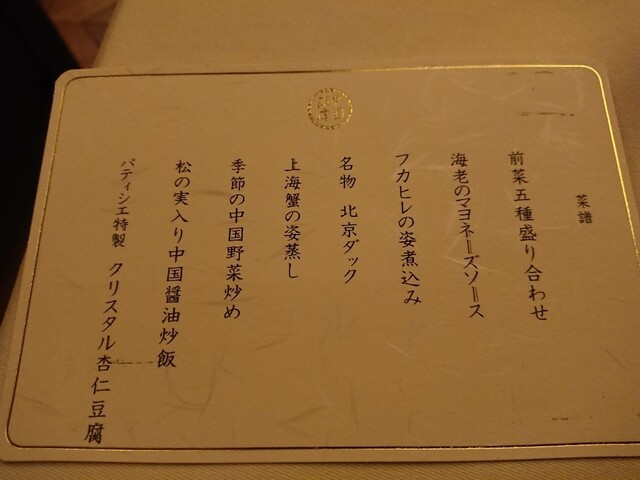 菜譜
前菜五種盛り合わせ
海老のマヨネーズソース
フカヒレの姿煮込み
名物 北京ダック
上海蟹の姿蒸し
季節の中国野菜炒め
松の実入り中国醤油炒飯
パティシエ特製 クリスタル杏仁豆腐